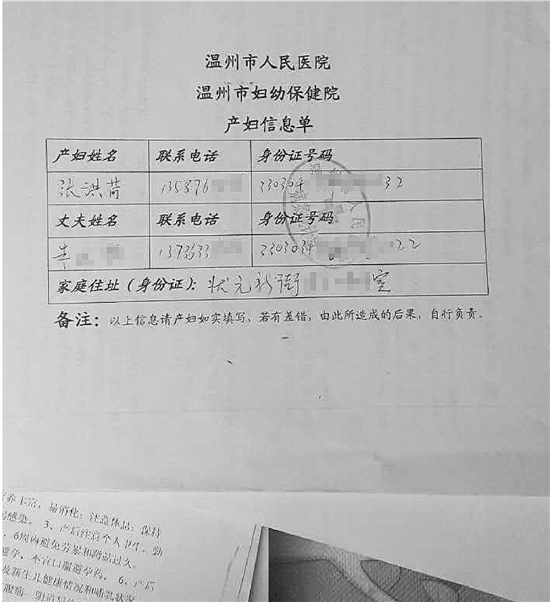 温州市人民医院
温州市妇幼保健院
产妇信息单
产妇姓名 联系电话 身份证号码
张洪苗 135876 330304 32
丈夫姓名 联系电话 身份证号码
137333 330304 22
家庭住址(身份证): 状元新街 室
备注: 以上信息请产妇如实填写,若有差错,由此所造成的后果,自行负责。
易消化;注意休息;保持
感染。3、产后注意个人卫生,勤
6周内避免劳累和蹲站过久。
避孕,不宜口服避孕药。6、产后
及新生儿健康情况和哺乳状况